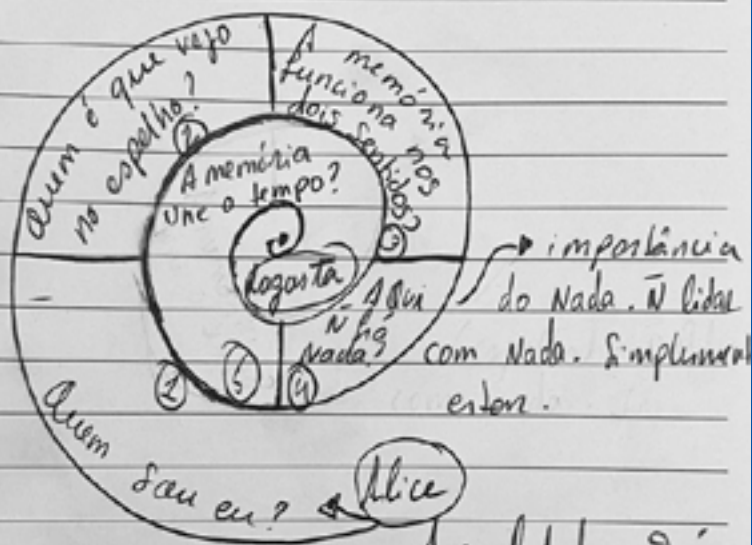 Quem é que vejo
no espelho?
2
A memória
funciona nos
dois sentidos?
3
A memória
une o tempo?
Lagarta
Aqui
ñ há
nada.
importância
do Nada. Ñ lidar
com Nada. Simplesment
estar.
1
5
4
Quem sou eu?
Alice